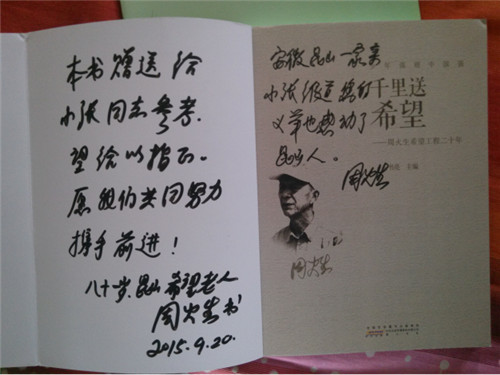 本书赠送给
小张同志参考.
望给以指正。
愿我们共同努力
携手前进！
八十岁.昆山希望老人
周火生书
2015.9.20.
安徽昆山一家亲
小张报道
千里送
义举也感动了
希望
昆山人。
——周火生希望工程二十年
周火生
主编
周火生